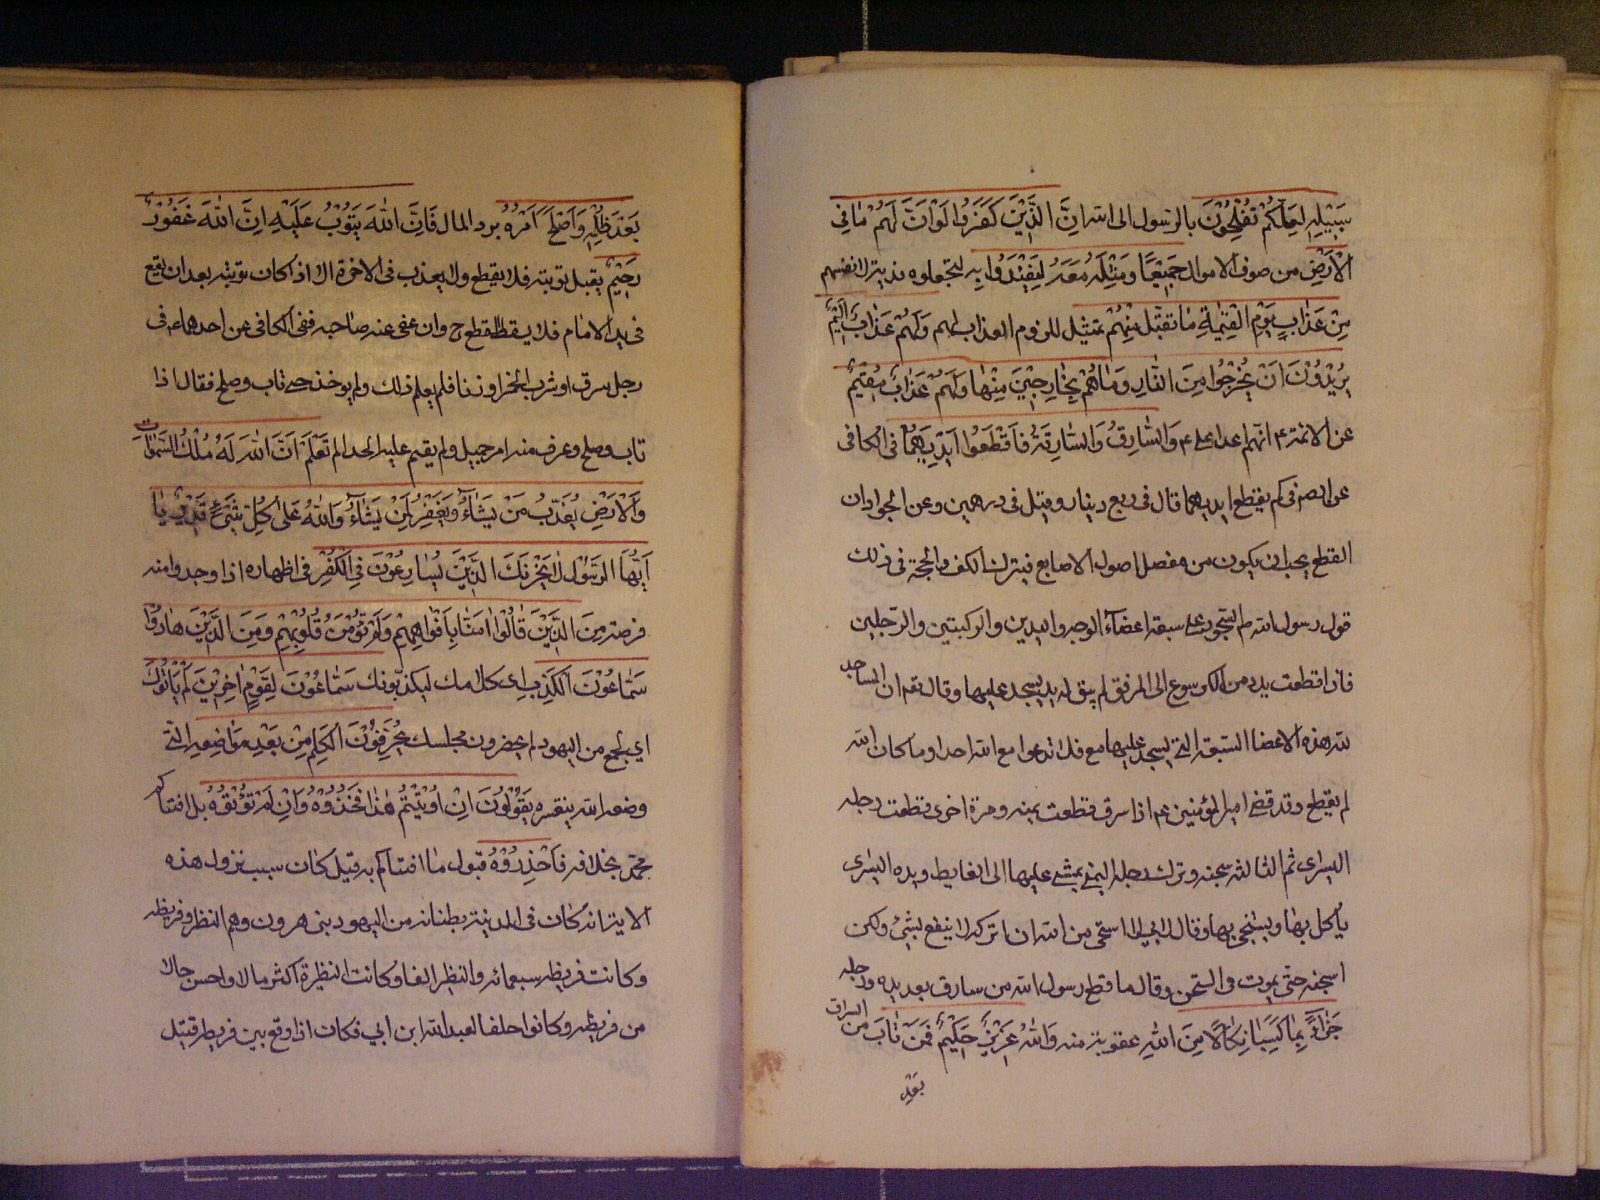 سَبِيلِهِ لَعَلَّكُمْ تُفْلِحُونَ بالرسول الى الله اِنَّ الَّذِينَ كَفَرُوا لَوْ اَنَّ لَهُمْ مَا فِي
الْاَرْضِ من صوف الاموال جَمِيعًا وَمِثْلَهُ مَعَهُ لِيَفْتَدُوا بِهِ ليجعلوه فدية لانفسهم
مِنْ عَذَابِ يَوْمِ الْقِيٰمَةِ مَا تُقُبِّلَ مِنْهُمْ تمثيل للزوم العذاب لهم وَلَهُمْ عَذَابٌ اَلِيمٌ
يُرِيدُونَ اَنْ يَخْرُجُوا مِنَ النَّارِ وَمَا هُمْ بِخَارِجِينَ مِنْهَا وَلَهُمْ عَذَابٌ مُقِيمٌ
عن الائمة ع انهم اعداء علي ع وَالسَّارِقُ وَالسَّارِقَةُ فَاقْطَعُوا اَيْدِيَهُمَا في الكافي
عن الص في كم يقطع ايديهما قال في ربع دينار وقيل في درهمين وعن الجواد ان
القطع يجب ان يكون من مفصل اصول الاصابع فيترك الكف والحجة في ذلك
قول رسول الله ص السجود على سبعة اعضاء الوجه واليدين والركبتين والرجلين
فاذا قطعت يده من الكرسوع الى المرفق لم يبق له يد يسجد عليها وقال تع ان المساجد
لله هذه الاعضا السبعة التي يسجد عليها مع فلا تدعوا مع الله احدا وما كان لله
لم يقطع وقد قضى امير المؤمنين ع اذا سرق قطعت يمينه ومرة اخرى قطعت رجله
اليسرى ثم الثالثة سجنه وترك رجله اليمنى يمشي عليها الى الغايط ويده اليسرى
يأكل بها ويستنجي بها وقال اني لا استحي من الله ان اتركه لا ينفع بشئ ولكن
اسجنه حتى يموت في السجن وقال ما قطع رسول الله من سارق بعد يده ورجله
جَزَاءً بِمَا كَسَبَا نَكَالًا مِنَ اللهِ عقوبة منه وَاللهُ عَزِيزٌ حَكِيمٌ فَمَنْ تَابَ من السراق
بَعْدِ
بَعْدَ ظُلْمِهِ وَاَصْلَحَ اَمْرُهُ برد المال فَاِنَّ اللهَ يَتُوبُ عَلَيْهِ اِنَّ اللهَ غَفُورٌ
رَحِيمٌ يقبل توبته فلا يقطع ولا يعذب في الاخرة الا اذا كان توبته بعد ان يقع
في يد الامام فلا يسقط القطع ح وان عفى عنه صاحبه ففي الكافي عن احدهما ع في
رجل سرق او شرب الخمر او زنا فلم يعلم ذلك ولم يوخذ حتى تاب وصلح فقال اذا
تاب وصلح وعرف منه امر جميل ولم يقيم عليه الحد اَلَمْ تَعْلَمْ اَنَّ اللهَ لَهُ مُلْكُ السَّمٰوَاتِ
وَالْاَرْضِ يُعَذِّبُ مَنْ يَشَاءُ وَيَغْفِرُ لِمَنْ يَشَاءُ وَاللهُ عَلَى كُلِّ شَيْءٍ قَدِيرٌ يَا
اَيُّهَا الرَّسُولُ لَا يَحْزُنْكَ الَّذِينَ يُسَارِعُونَ فِي الْكُفْرِ في اظهاره اذا وجدوا منه
فرصته مِنَ الَّذِينَ قَالُوا اٰمَنَّا بِاَفْوَاهِهِمْ وَلَمْ تُؤْمِنْ قُلُوبُهُمْ وَمِنَ الَّذِينَ هَادُوا
سَمَّاعُونَ لِلْكَذِبِ اى كلامك ليكذبونك سَمَّاعُونَ لِقَوْمٍ اٰخَرِينَ لَمْ يَاْتُوكَ
اي لجمع من اليهود لم يحضرون مجلسك يُحَرِّفُونَ الْكَلِمَ مِنْ بَعْدِ مَوَاضِعِهِ التي
وضعه الله بنقسه يَقُولُونَ اِنْ اُوتِيتُمْ هٰذَا فَخُذُوهُ وَاِنْ لَمْ تُؤْتَوْهُ بل افتاكم
محمد بخلافه فَاحْذَرُوهُ قبول ما افتاكم به قيل كان سبب نزول هذه
الاية انه كان في المدينة بطنان من اليهود بني هرون وهم النظر وقريظه
وكانت قريظه سبعمائه والنظر الفا وكانت النظيرة اكثر مالا واحسن حالا
من قريظه وكانوا حلفا لعبد الله ابن ابي فكان اذا وقع بين قريظه قتيل